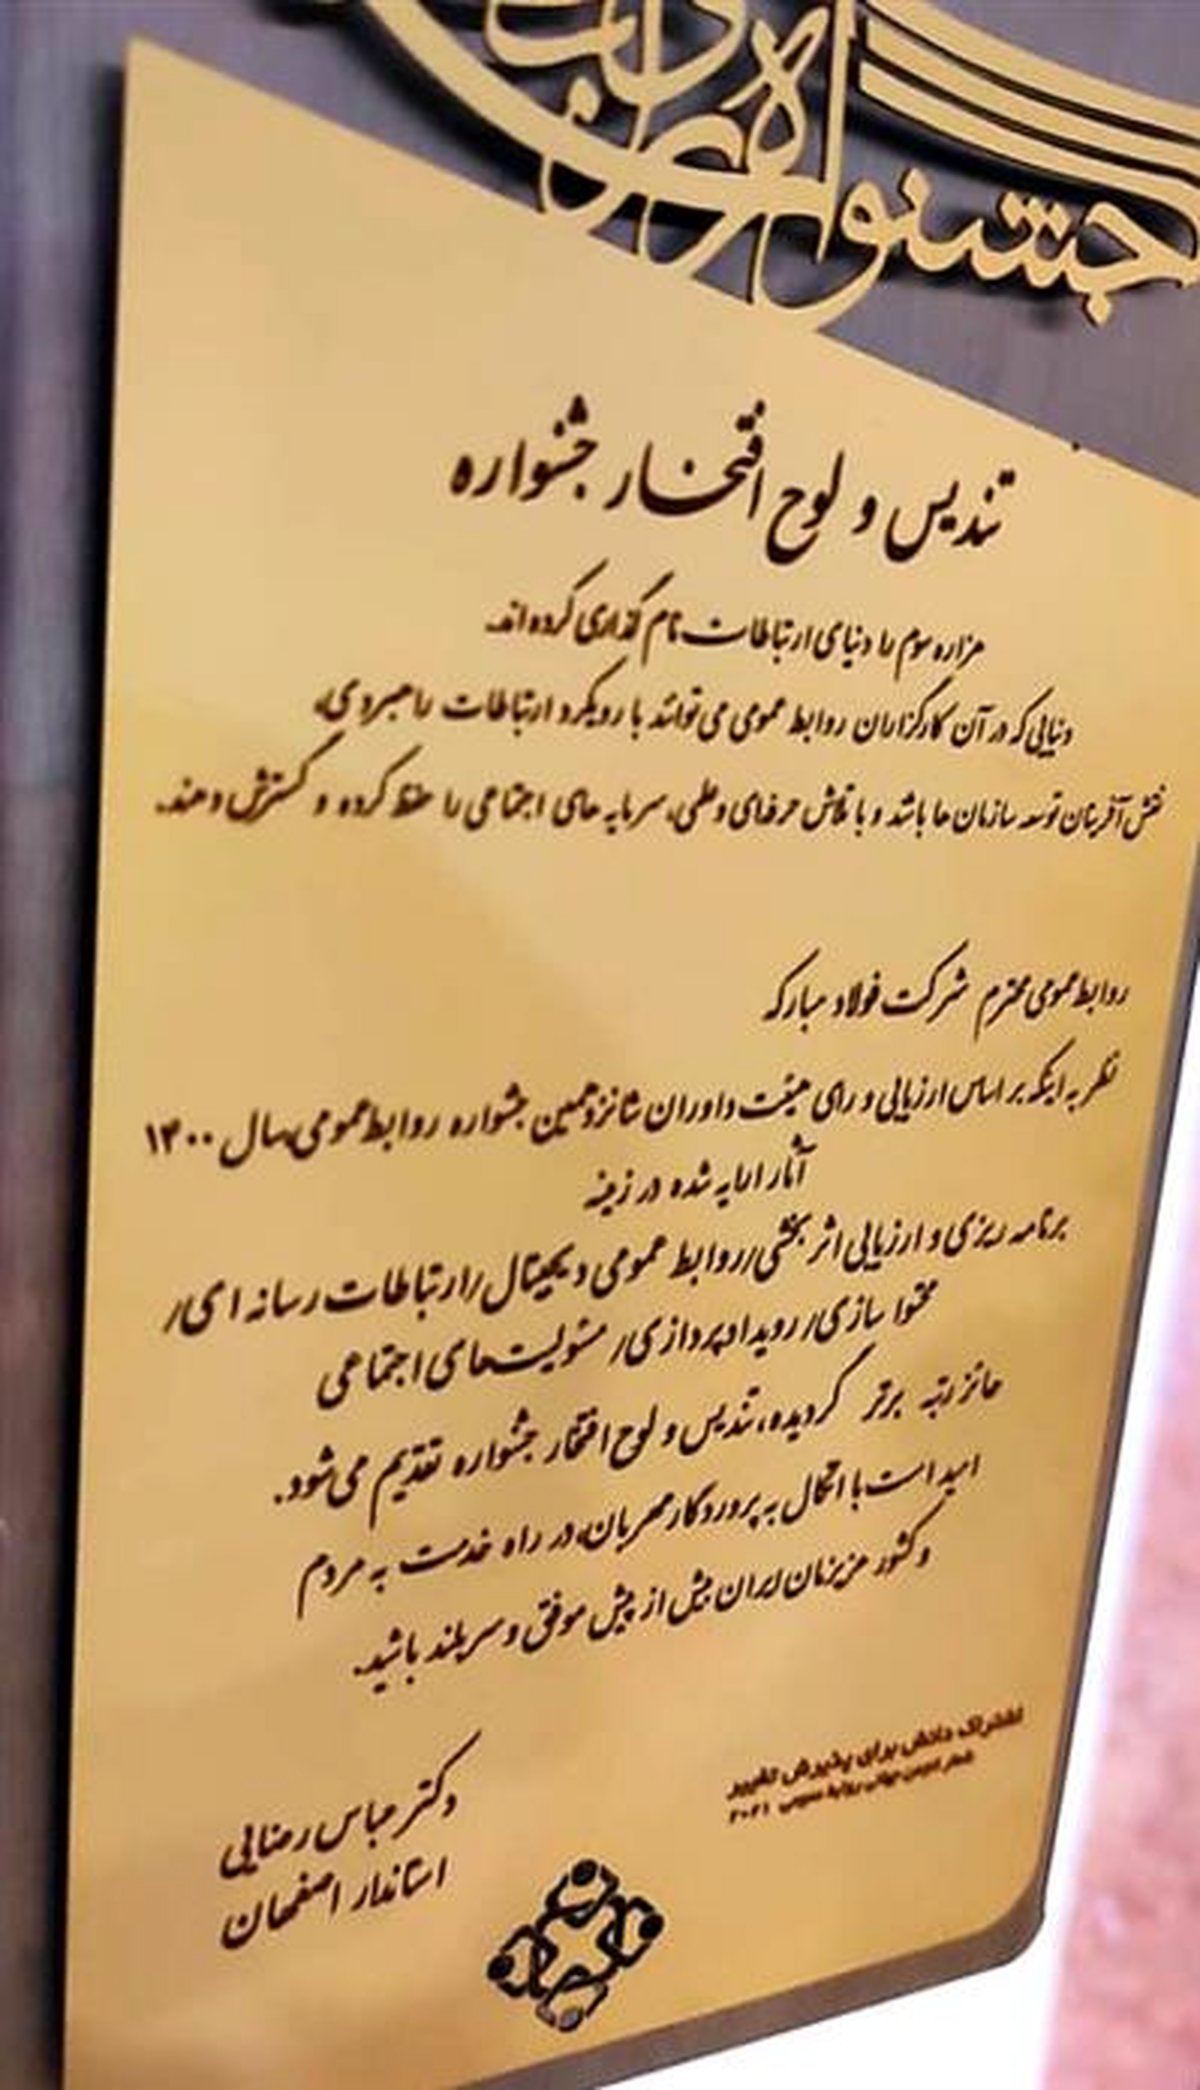 جشنواره
تندیس و لوح افتخار جشنواره
هزاره سوم را دنیای ارتباطات نام گذاری کرده اند.
دنیایی که در آن کارگزاران روابط عمومی می توانند با رویکرد ارتباطات راهبردی،
نقش آفرینان توسعه سازمان ها باشد و با تلاش حرفه ای و علمی، سرمایه های اجتماعی را حفظ کرده و گسترش دهند.
روابط عمومی محترم شرکت فولاد مبارکه
نظر به اینکه بر اساس ارزیابی و رای هیئت داوران شانزدهمین جشواره روابط عمومی سال ۱۴۰۰
آثار ارایه شده در زمینه
برنامه ریزی و ارزیابی اثر بخشی/روابط عمومی دیجیتال/ارتباطات رسانه ای/
محتوا سازی/ رویداد پردازی/ مسئولیت های اجتماعی
حائز رتبه برتر گردیده، تندیس و لوح افتخار جشنواره تقدیم می شود.
امید است با اتکال به پروردگار مهربان، در راه خدمت به مردم
و کشور عزیزمان ایران بیش از پیش موفق و سربلند باشید.
دکتر عباس رضایی
استاندار اصفهان
اشتراک دانش برای پذیرش تغییر
شعار انجمن جهانی روابط عمومی ۲۰۲۱